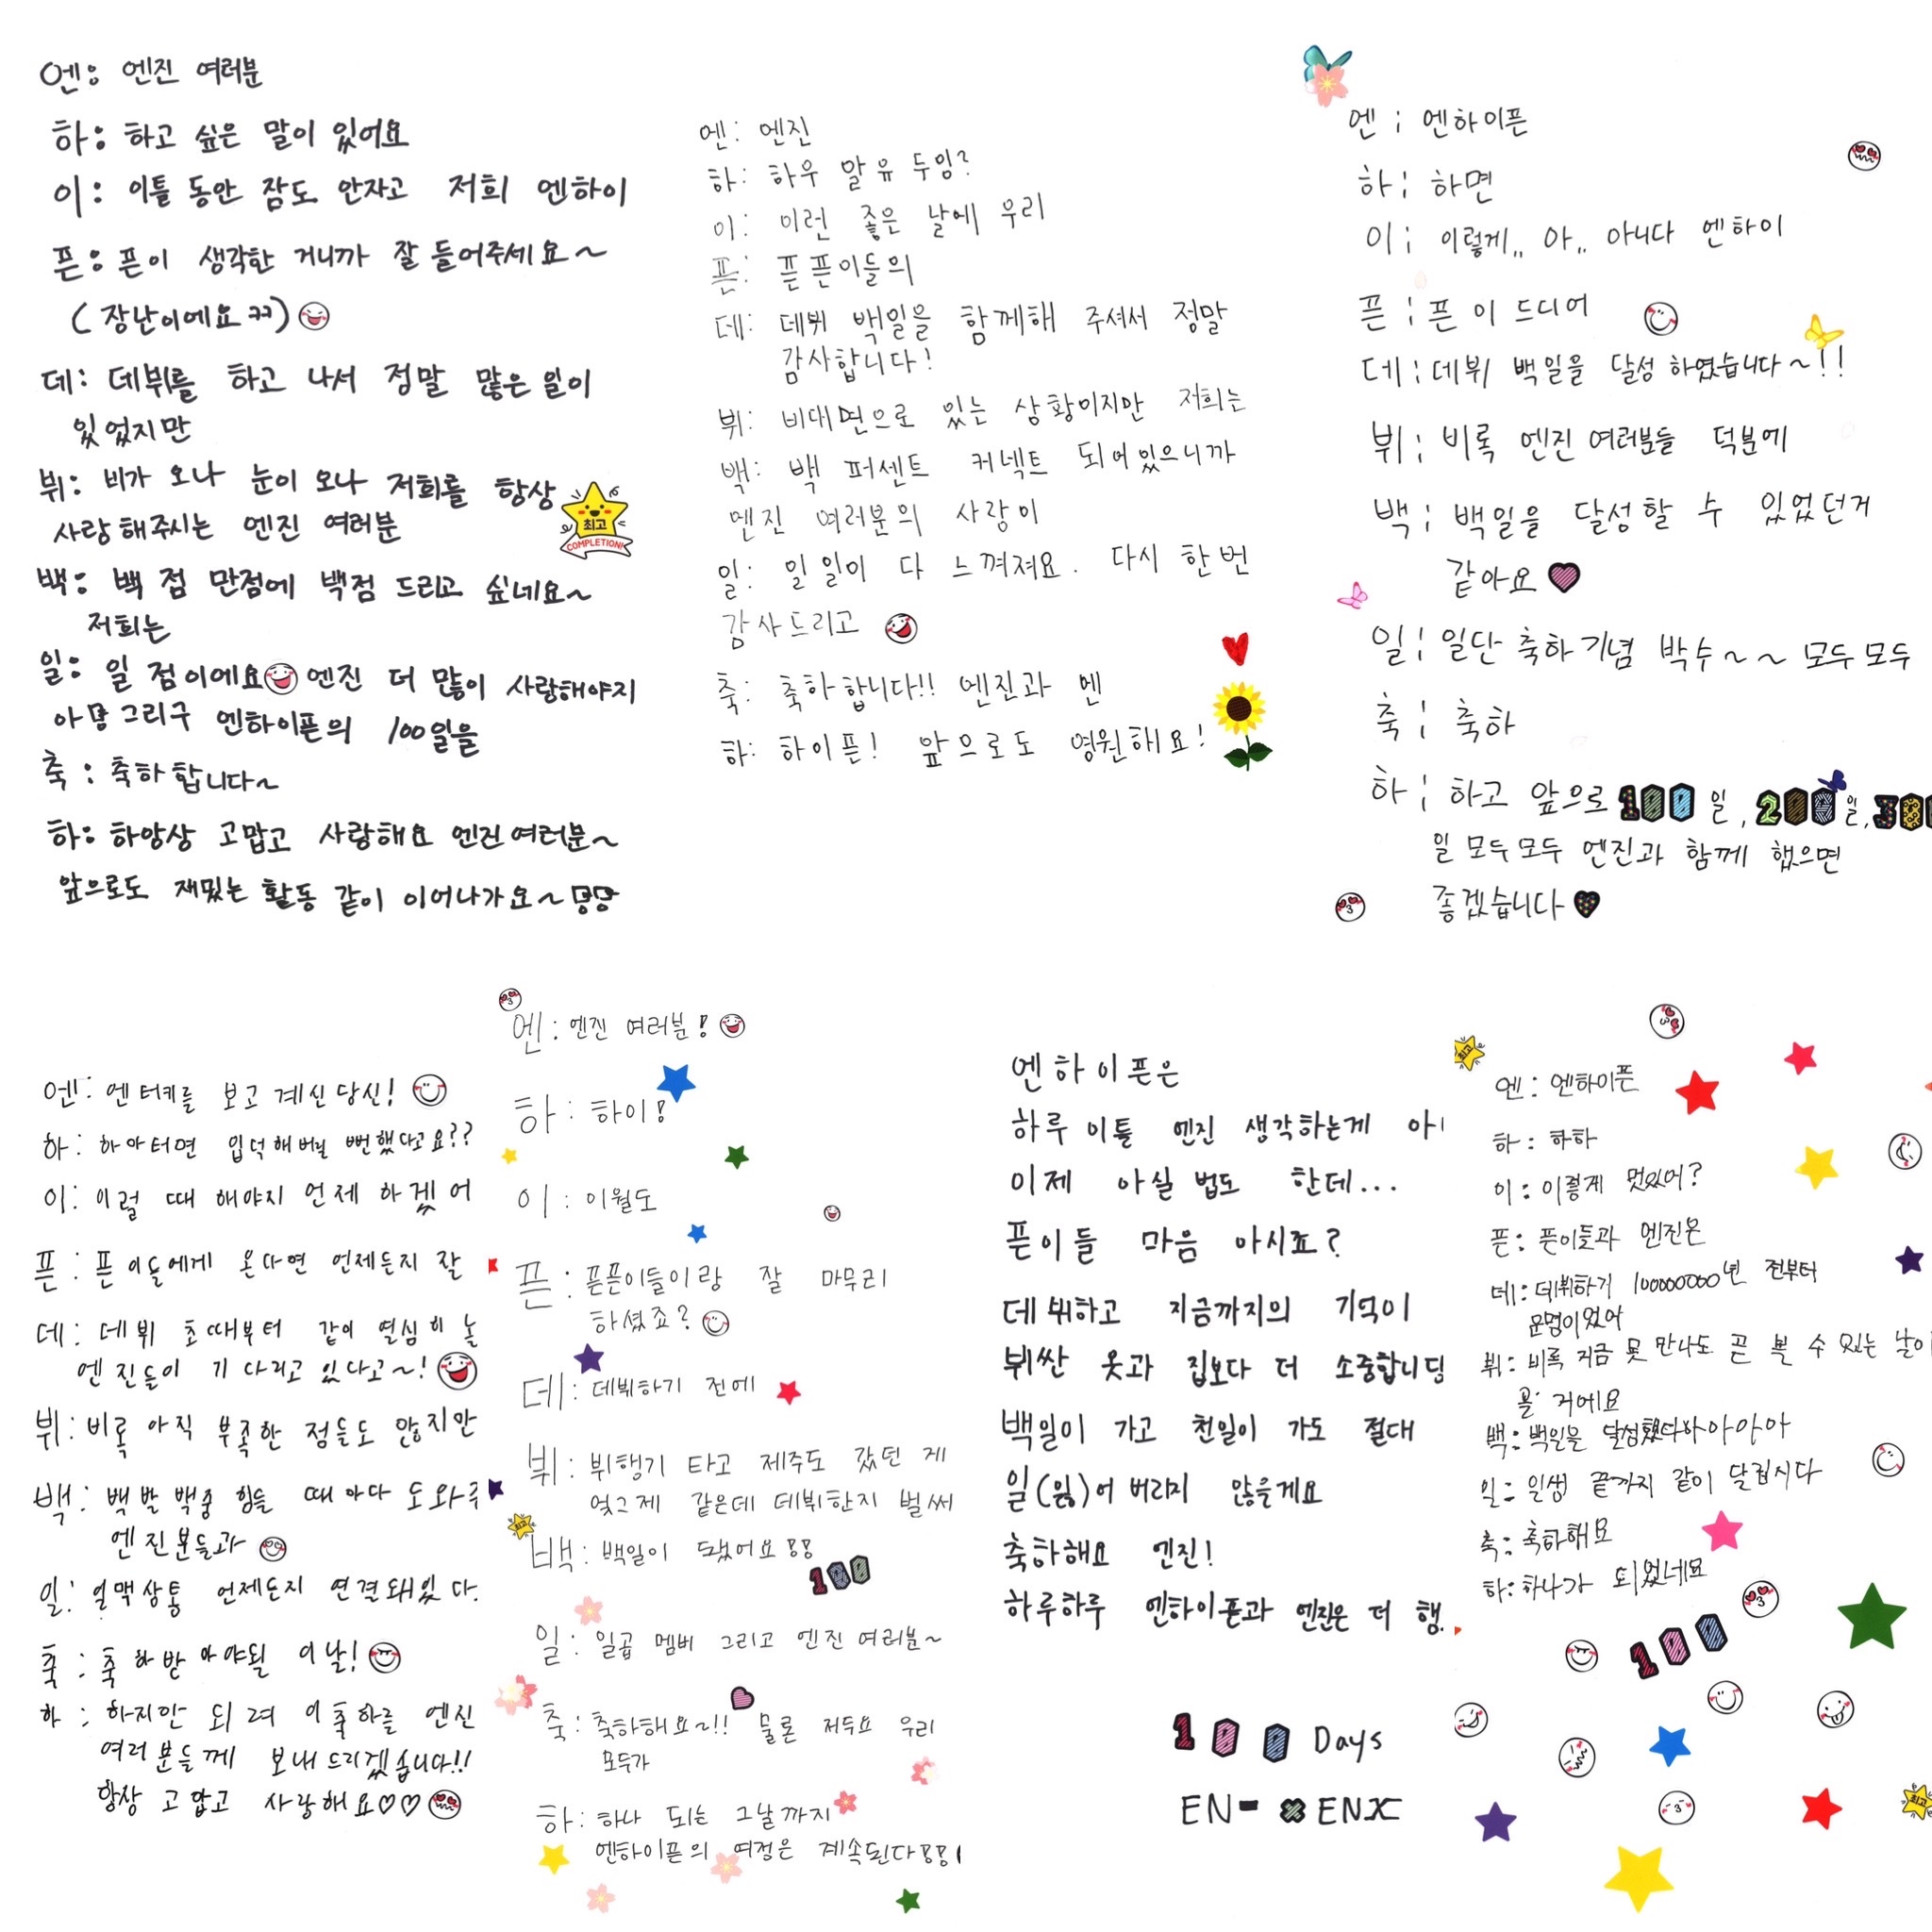 엔: 엔진 여러분
하: 하고 싶은 말이 있어요
이: 이틀 동안 잠도 안자고 저희 엔하이
픈: 픈이 생각한 거니까 잘 들어주세요~
(장난이에요 ㅋㅋ)
데: 데뷔를 하고 나서 정말 많은 일이
있었지만
뷔: 비가 오나 눈이 오나 저희를 항상
사랑해주시는 엔진 여러분
최고
COMPLETION!
백: 백 점 만점에 백점 드리고 싶네요~
저희는
일: 일 점이에요 엔진 더 많이 사랑해야지
아맘 그리구 엔하이픈의 100일을
축: 축하합니다~
하: 하앙상 고맙고 사랑해요 엔진여러분~
앞으로도 재밌는 활동 같이 이어나가요~
엔: 엔진
하: 하우 알 유 두잉?
이: 이런 좋은 날에 우리
픈: 픈픈이들의
데: 데뷔 백일을 함께해 주셔서 정말
감사합니다!
뷔: 비대면으로 있는 상황이지만 저희는
백: 백 퍼센트 커넥트 되어있으니까
엔진 여러분의 사랑이
일: 일일이 다 느껴져요. 다시 한번
감사드리고
축: 축하합니다!! 엔진과 엔
하: 하이픈! 앞으로도 영원해요!
엔 ; 엔하이픈
하 ; 하면
이 ; 이렇게,, 아,, 아니다 엔하이
픈 ; 픈 이 드디어
데 ; 데뷔 백일을 달성 하였습니다~!!
뷔 ; 비록 엔진 여러분들 덕분에
백 ; 백일을 달성할 수 있었던거
같아요
일 ; 일단 축하기념 박수~~ 모두모두
축 ; 축하
하 ; 하고 앞으로 100일, 200일, 300
일 모두모두 엔진과 함께 했으면
좋겠습니다
엔: 엔터키를 보고 계신당신!
하: 하마터면 입덕해버릴 뻔했다고요??
이: 이럴 때 해야지 언제 하겠어
픈: 픈이들에게 온다면 언제든지 잘
데: 데뷔 초때부터 같이 열심히 놀
엔진들이 기다리고 있다고~!
뷔: 비록 아직 부족한 점들도 많지만
백: 백발백중 힘들 때마다 도와주
엔진분들과
일: 일맥상통 언제든지 연결돼있다.
축: 축하받아야될 이날!
하: 하지만 되려 이축하를 엔진
여러분들께 보내드리겠습니다!!
항상 고맙고 사랑해요♡♡
엔: 엔진 여러분!
하: 하이!
이: 이월도
픈: 픈픈이들이랑 잘 마무리
하셨죠?
데: 데뷔하기 전에
뷔: 뷔행기 타고 제주도 갔던 게
엊그제 같은데 데뷔한지 벌써
최고
백: 백일이 됐어요!!
100
일: 일곱 멤버 그리고 엔진여러분~
축: 축하해요~!! 물론 저두요 우리
모두가
하: 하나 되는 그날까지
엔하이픈의 여정은 계속된다!!!
엔하이픈은
하루 이틀 엔진 생각하는게 아니
이제 아실 법도 한데...
픈이들 마음 아시죠?
데뷔하고 지금까지의 기억이
뷔싼 옷과 집보다 더 소중합니딩
백일이 가고 천일이 가도 절대
일(잃)어 버리지 않을게요
축하해요 엔진!
하루하루 엔하이픈과 엔진은 더 행
100 Days
EN- ENX
최고
엔: 엔하이픈
하: 하하
이: 이렇게 멋있어?
픈: 픈이들과 엔진은
데: 데뷔하기 100000000년 전부터
운명이었어
뷔: 비록 지금 못 만나도 곧 볼 수 있는 날이
올 거에요
백: 백일을 달성했다아아아아
일: 일생 끝까지 같이 달립시다
축: 축하해요
하: 하나가 되었네요
100
최고